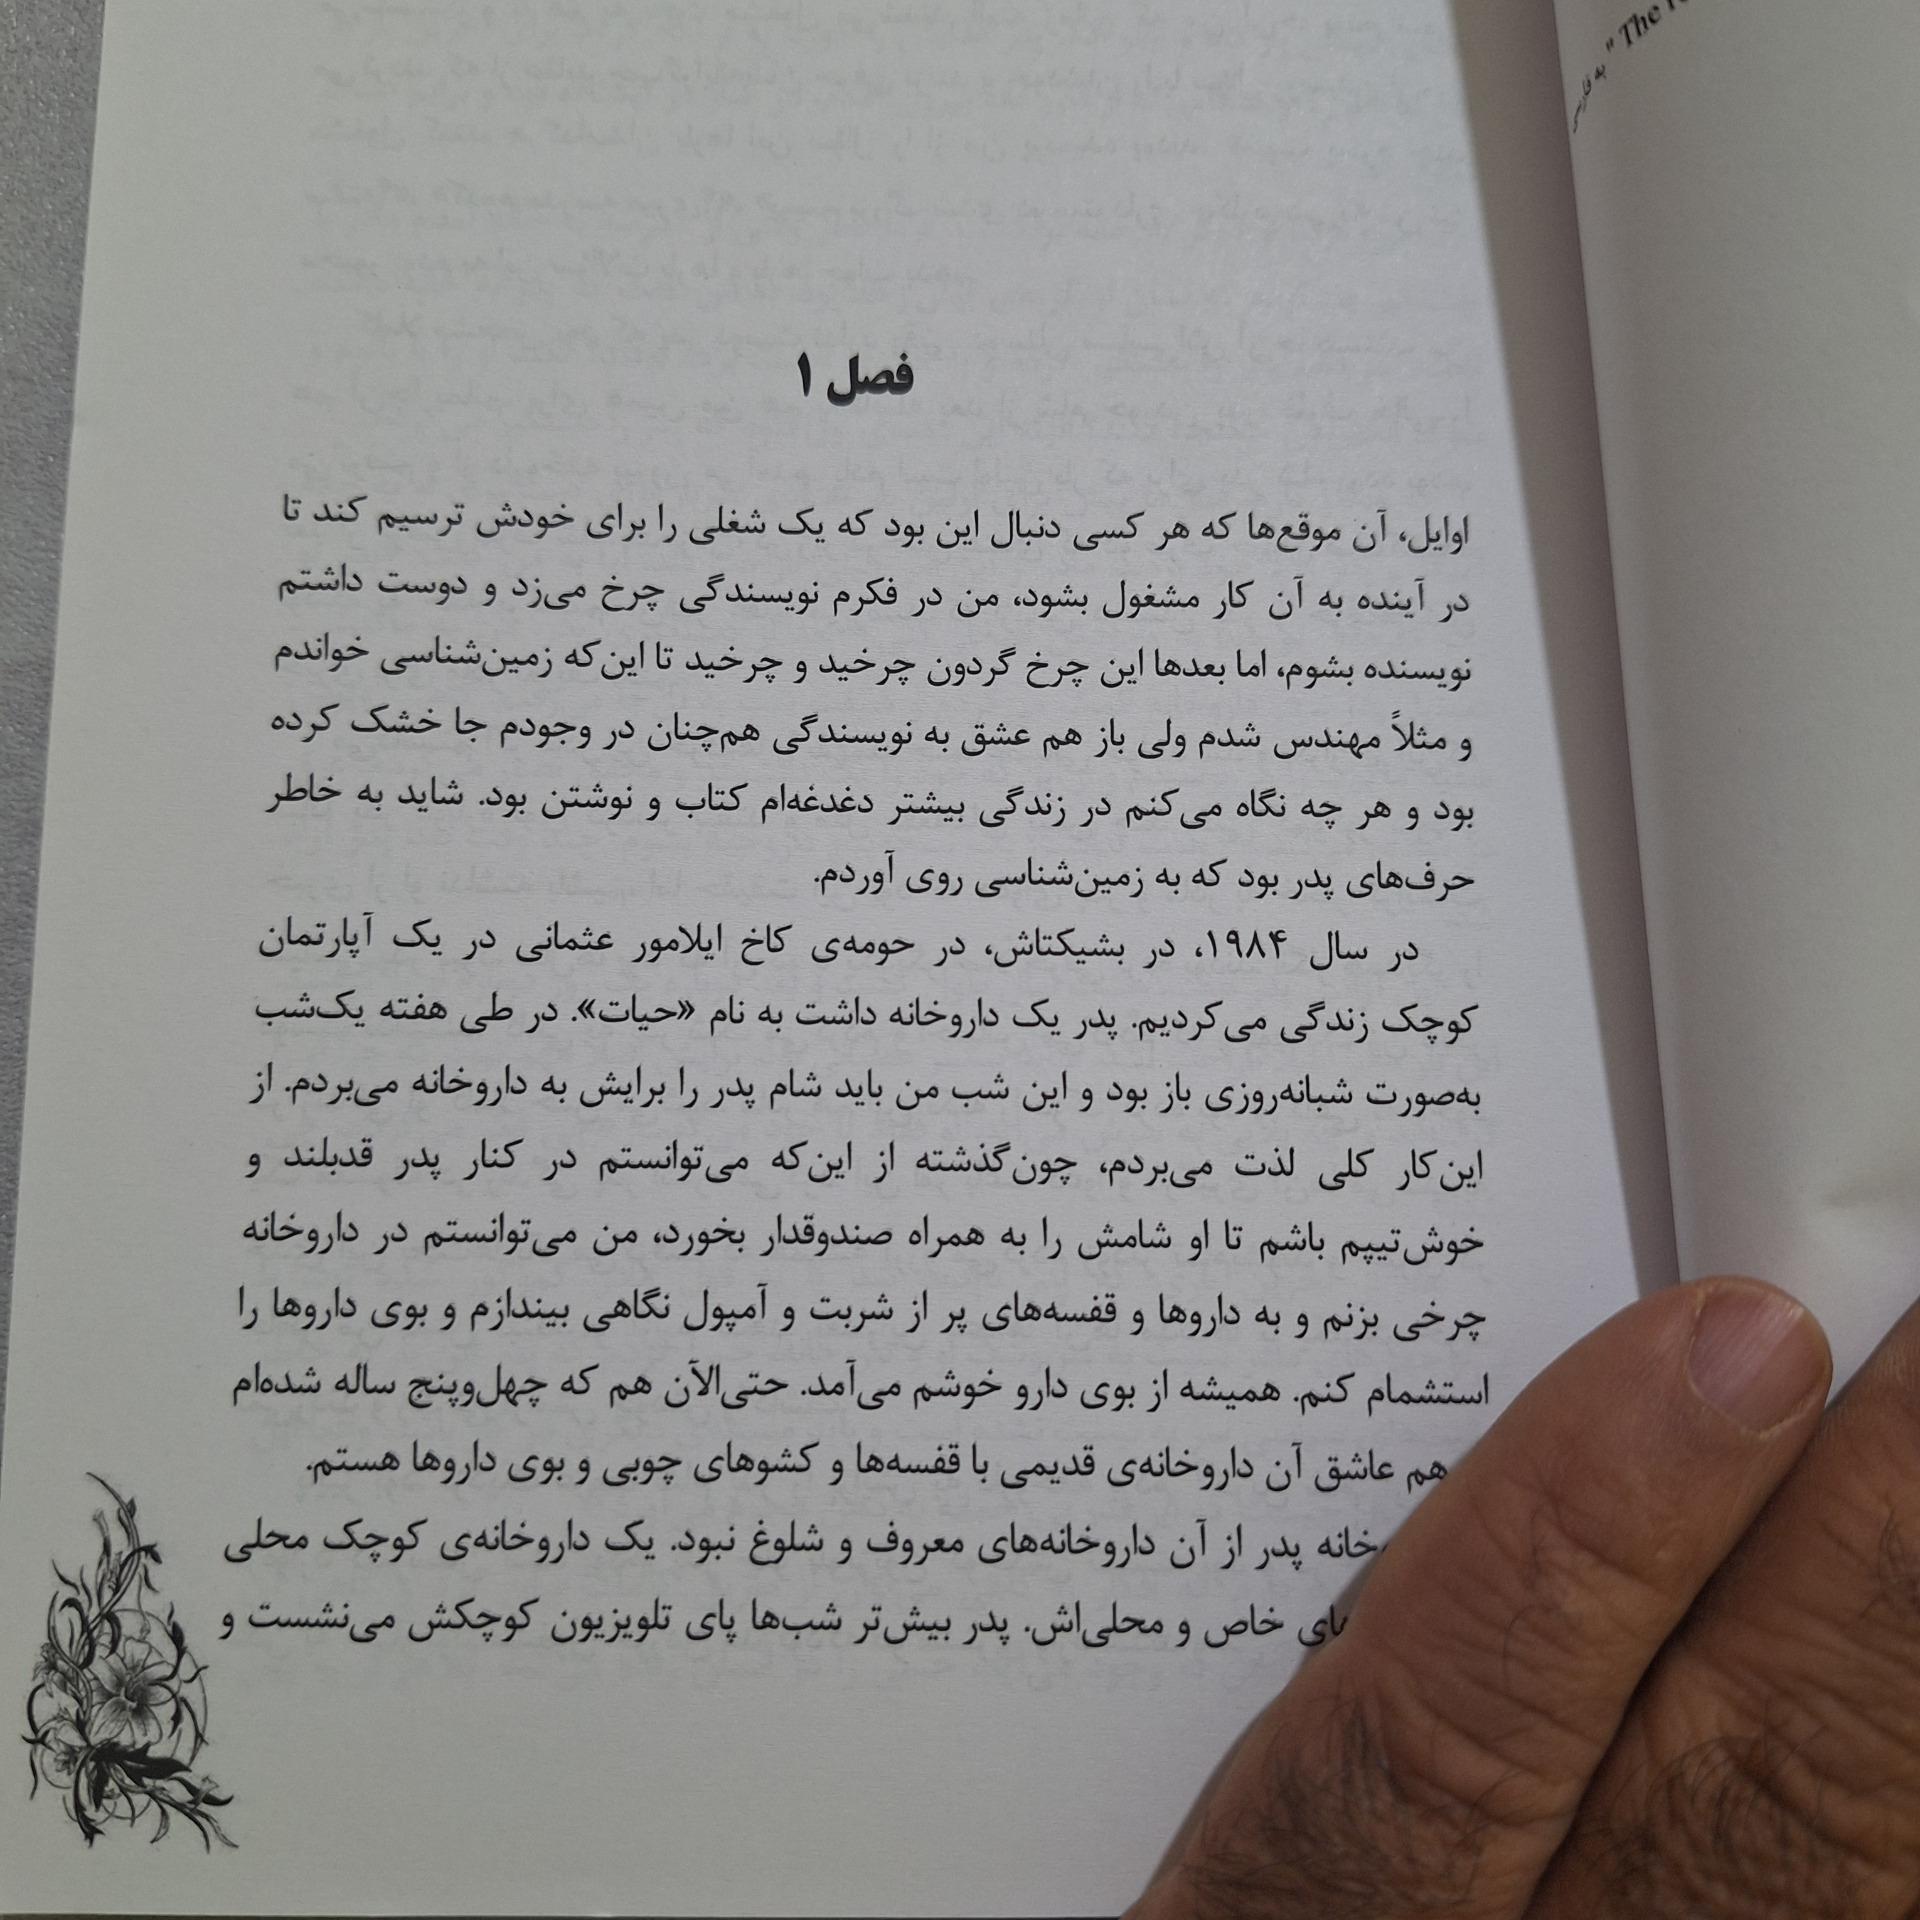 به فارسی
" The
فصل ۱
اوایل، آن موقع‌ها که هر کسی دنبال این بود که یک شغلی را برای خودش ترسیم کند تا
در آینده به آن کار مشغول بشود، من در فکرم نویسندگی چرخ می‌زد و دوست داشتم
نویسنده بشوم، اما بعدها این چرخ گردون چرخید و چرخید تا این‌که زمین‌شناسی خواندم
و مثلاً مهندس شدم ولی باز هم عشق به نویسندگی هم‌چنان در وجودم جا خشک کرده
بود و هر چه نگاه می‌کنم در زندگی بیشتر دغدغه‌ام کتاب و نوشتن بود. شاید به خاطر
حرف‌های پدر بود که به زمین‌شناسی روی آوردم.
در سال ۱۹۸۴، در بشیکتاش، در حومه‌ی کاخ ایلامور عثمانی در یک آپارتمان
کوچک زندگی می‌کردیم. پدر یک داروخانه داشت به نام «حیات». در طی هفته یک‌شب
به‌صورت شبانه‌روزی باز بود و این شب من باید شام پدر را برایش به داروخانه می‌بردم. از
این‌کار کلی لذت می‌بردم، چون‌گذشته از این‌که می‌توانستم در کنار پدر قدبلند و
خوش‌تیپم باشم تا او شامش را به همراه صندوقدار بخورد، من می‌توانستم در داروخانه
چرخی بزنم و به داروها و قفسه‌های پر از شربت و آمپول نگاهی بیندازم و بوی داروها را
استشمام کنم. همیشه از بوی دارو خوشم می‌آمد. حتی‌الآن هم که چهل‌وپنج ساله شده‌ام
هم عاشق آن داروخانه‌ی قدیمی با قفسه‌ها و کشوهای چوبی و بوی داروها هستم.
پدر از آن داروخانه‌های معروف و شلوغ نبود. یک داروخانه‌ی کوچک محلی
خاص و محلی‌اش. پدر بیش‌تر شب‌ها پای تلویزیون کوچکش می‌نشست و